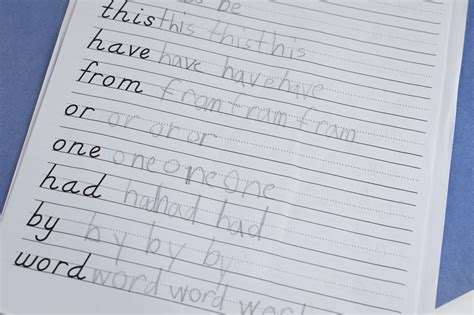 be
this this this this
have have have have
from fram fram fram
or or or or or
one one one one
had had had had
by hy by by
word word word word